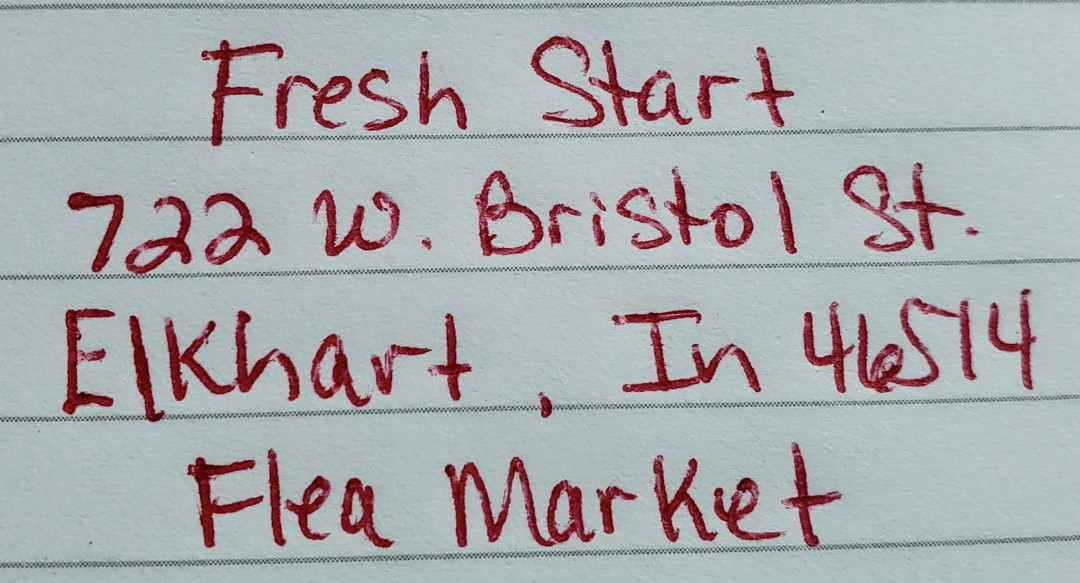 Fresh Start
722 W. Bristol St.
Elkhart, In 46514
Flea Market